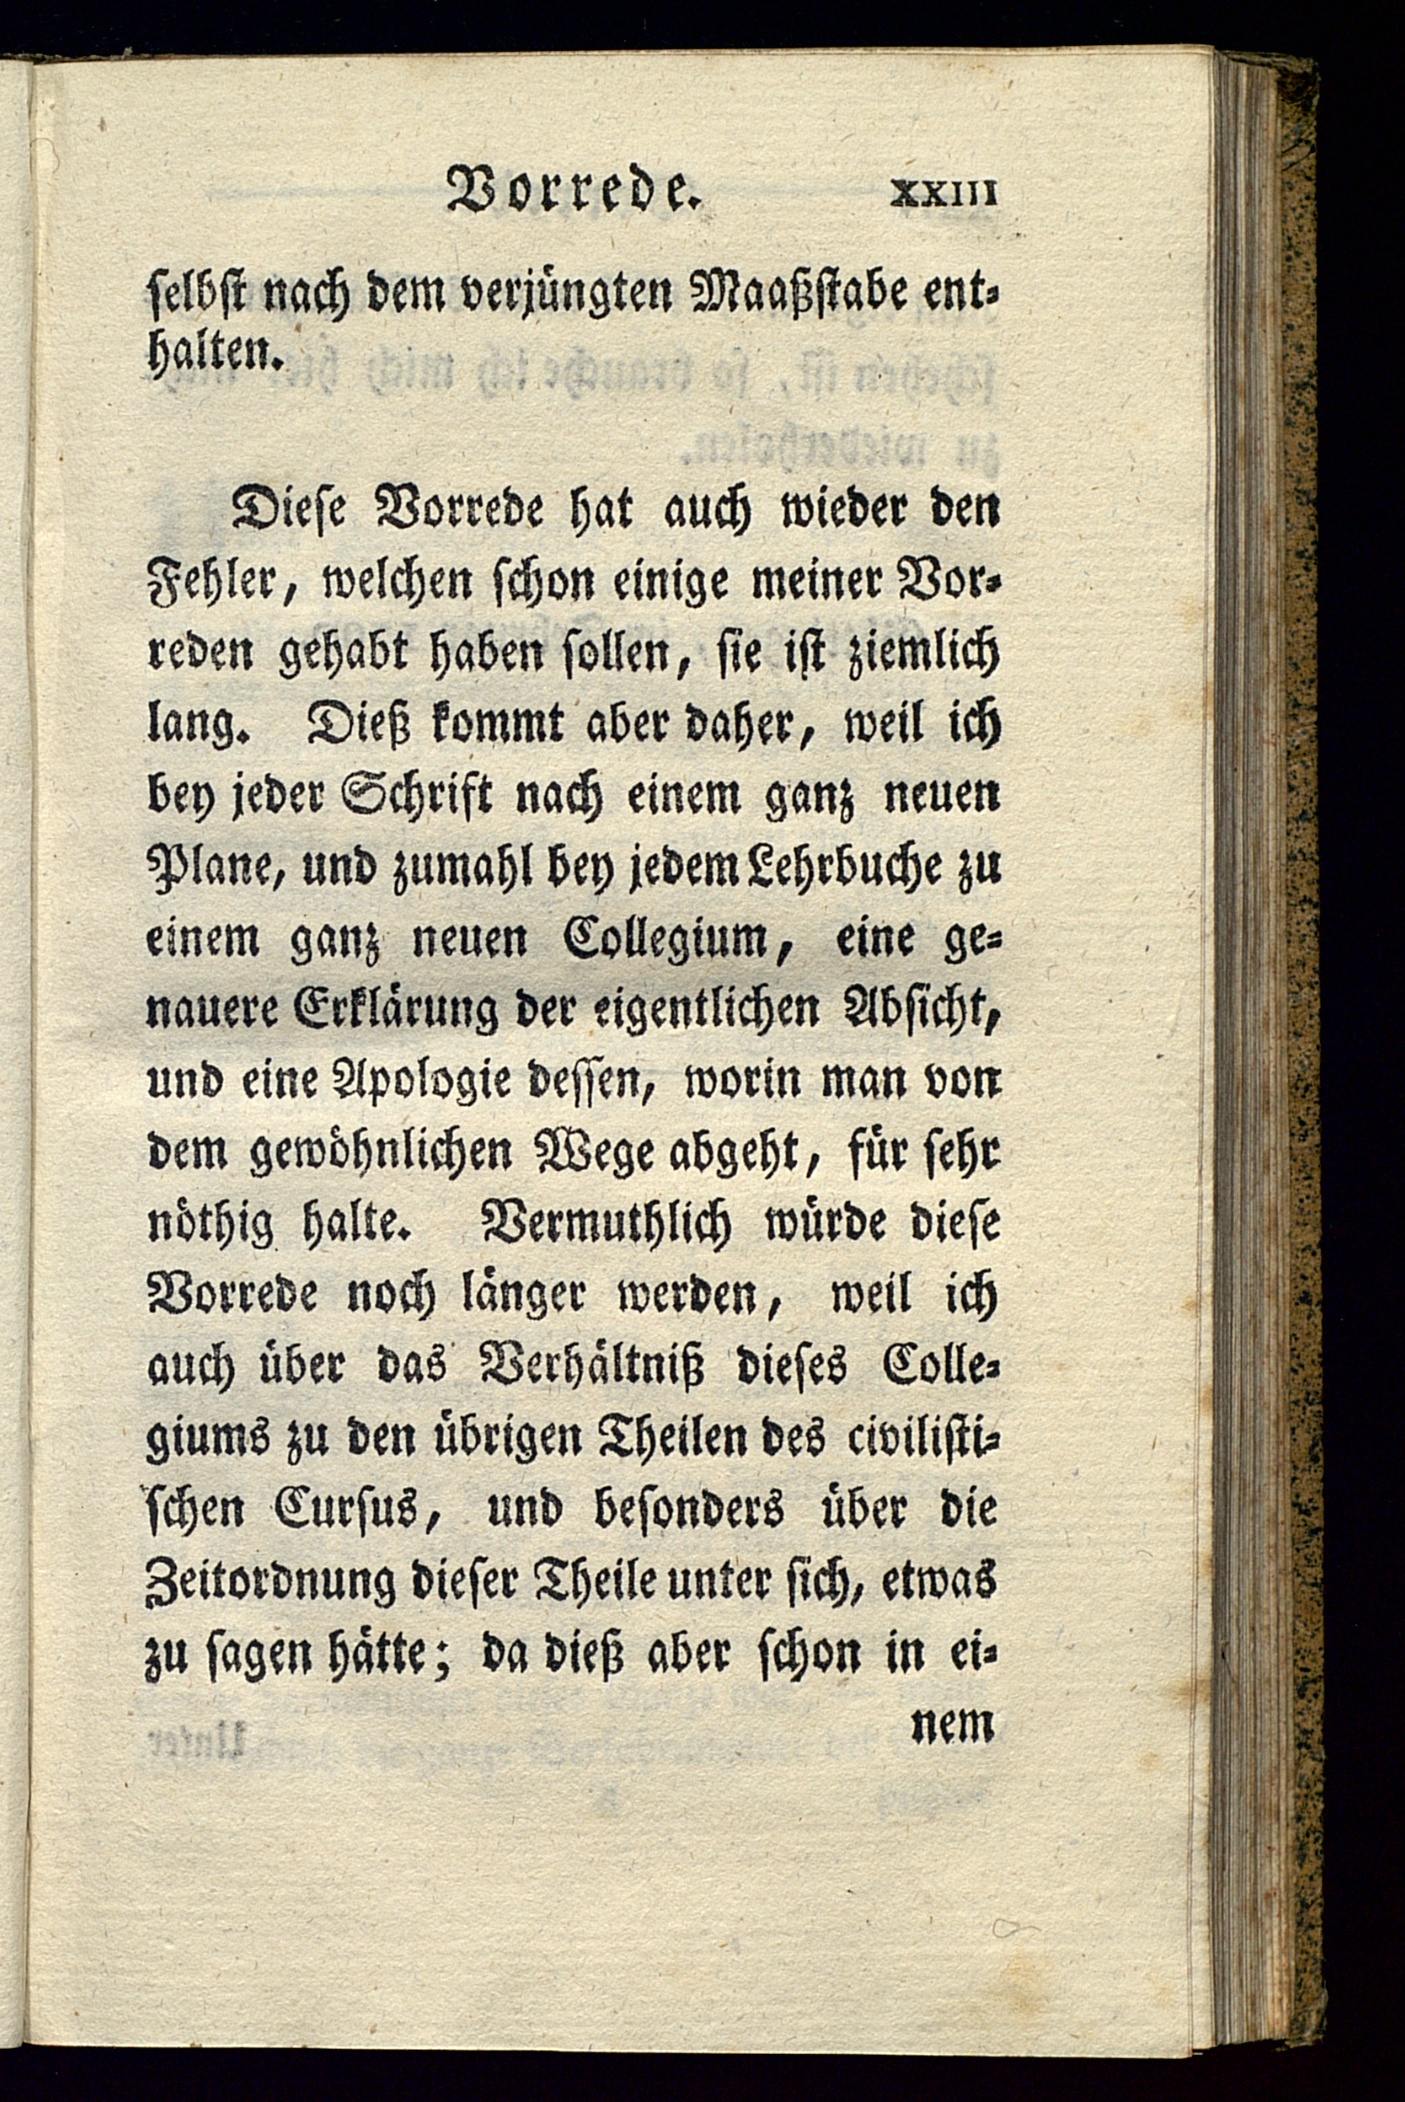 Vorrede. XXIII
ſelbſt nach dem verjüngten Maaßſtabe ent-
halten.
Dieſe Vorrede hat auch wieder den
Fehler, welchen ſchon einige meiner Vor-
reden gehabt haben ſollen, ſie iſt ziemlich
lang. Dieß kommt aber daher, weil ich
bey jeder Schrift nach einem ganz neuen
Plane, und zumahl bey jedem Lehrbuche zu
einem ganz neuen Collegium, eine ge-
nauere Erklärung der eigentlichen Abſicht,
und eine Apologie deſſen, worin man von
dem gewöhnlichen Wege abgeht, für ſehr
nöthig halte. Vermuthlich würde dieſe
Vorrede noch länger werden, weil ich
auch über das Verhältniß dieſes Colle-
giums zu den übrigen Theilen des civiliſti-
ſchen Curſus, und beſonders über die
Zeitordnung dieſer Theile unter ſich, etwas
zu ſagen hätte; da dieß aber ſchon in ei-
nem